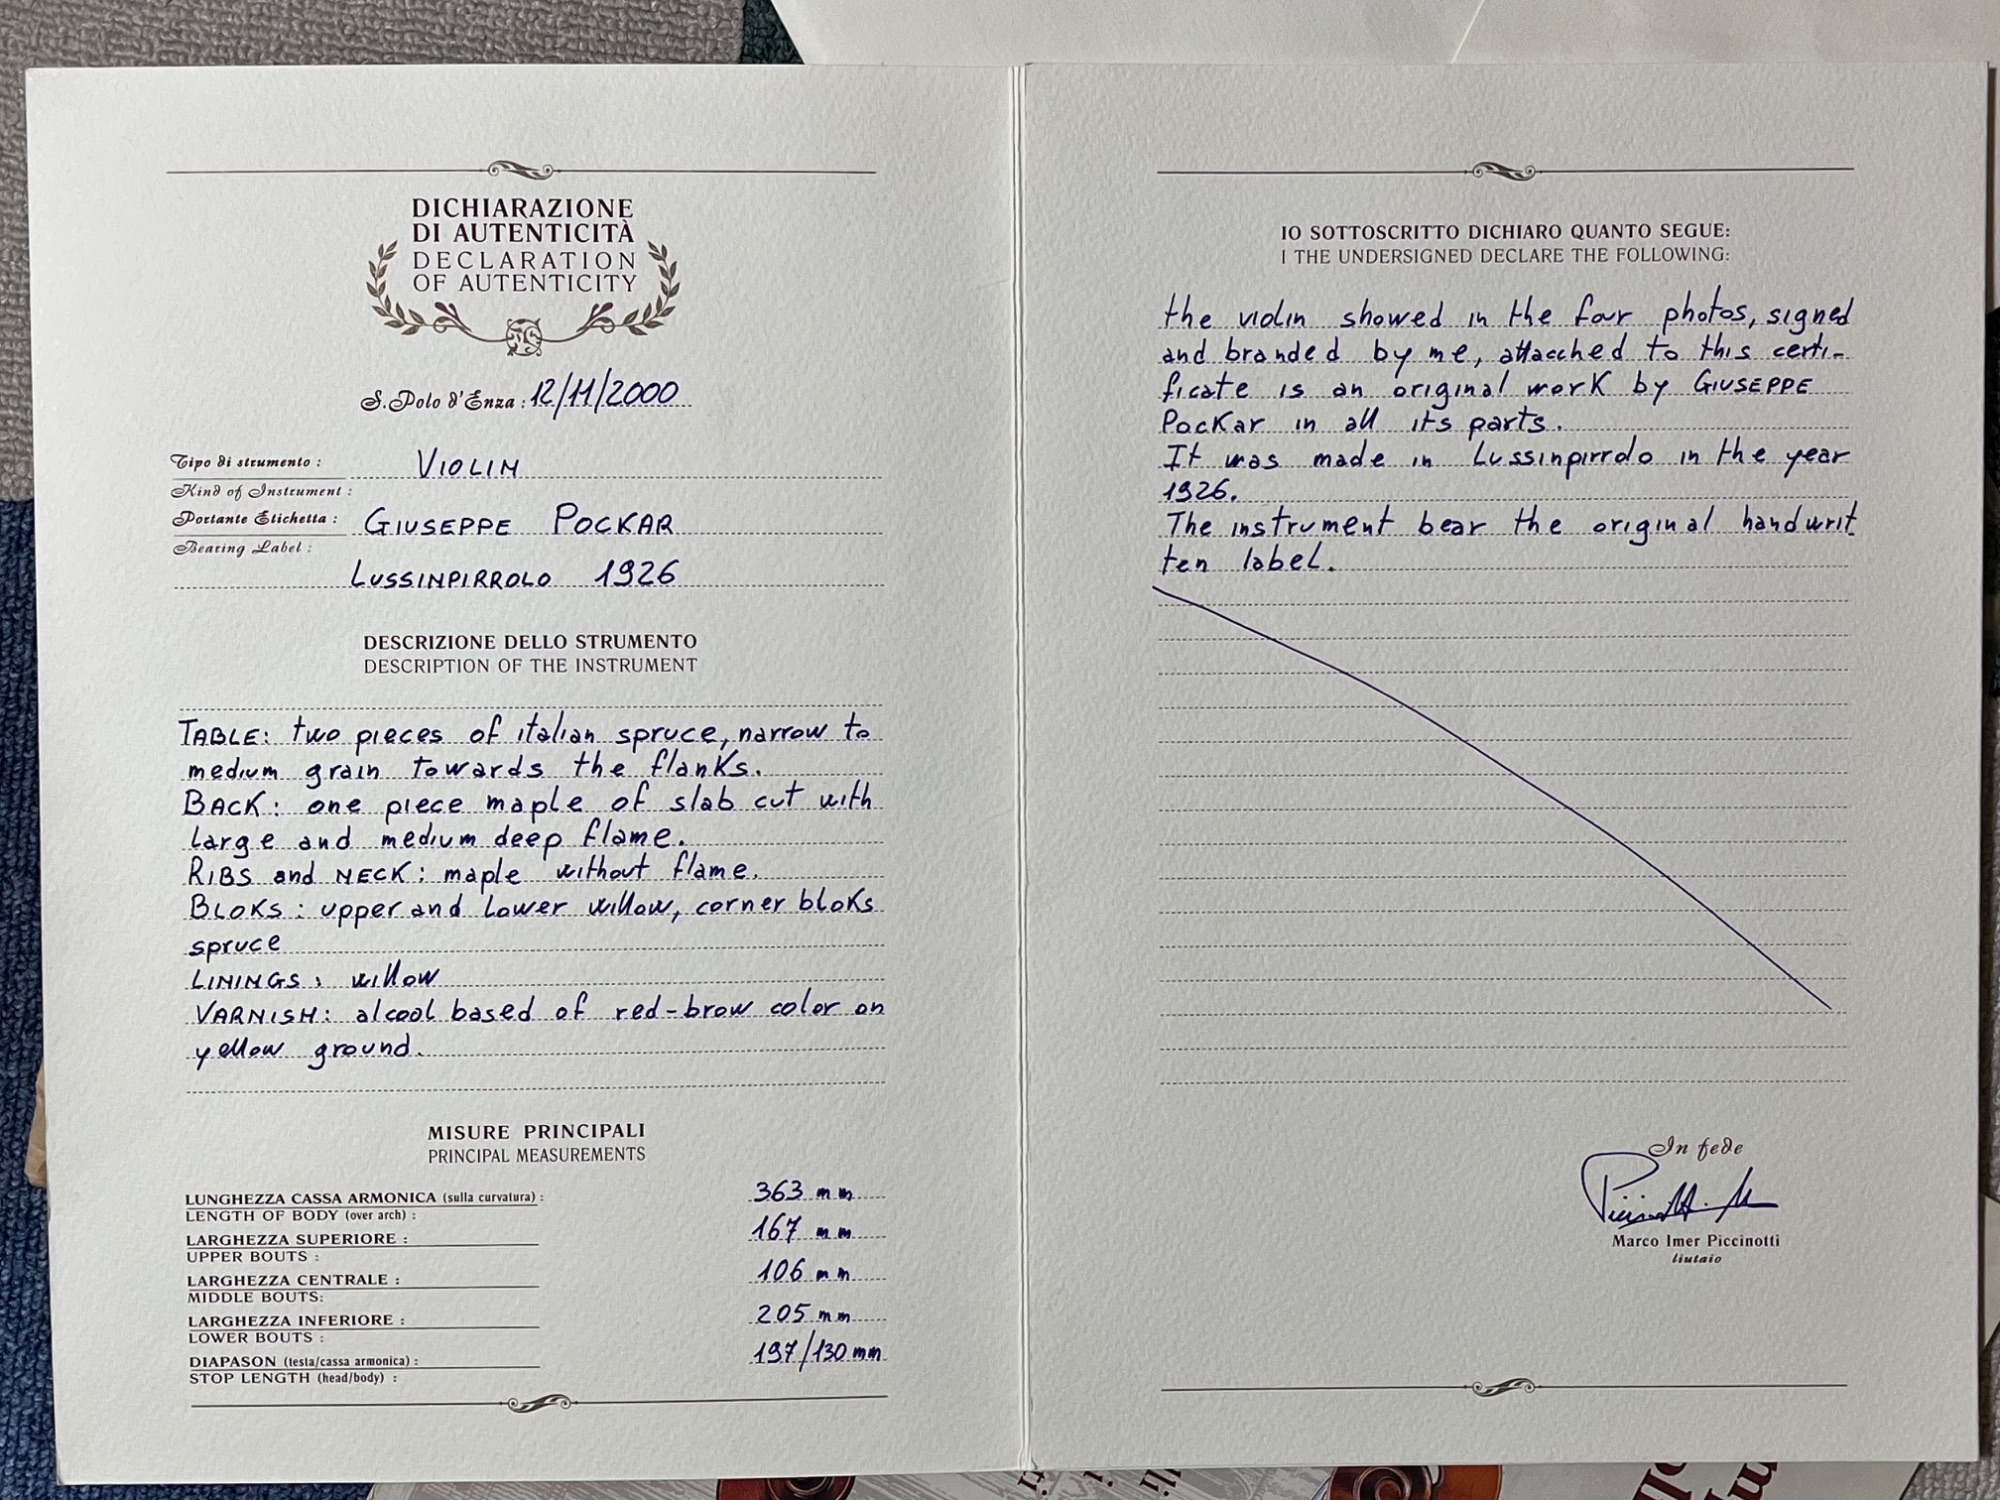 DICHIARAZIONE
DI AUTENTICITÀ
DECLARATION
OF AUTENTICITY
S. Polo d'Enza: 12/11/2000
Tipo di strumento: VIOLIN
Kind of Instrument:
Portante Etichetta: GIUSEPPE POCKAR
Bearing Label:
LUSSINPIRROLO 1926
DESCRIZIONE DELLO STRUMENTO
DESCRIPTION OF THE INSTRUMENT
TABLE: two pieces of italian spruce, narrow to
medium grain towards the flanks.
BACK: one piece maple of slab cut with
large and medium deep flame.
RIBS and NECK: maple without flame.
BLOKS: upper and lower willow, corner bloks
spruce
LININGS: willow
VARNISH: alcool based of red-brow color on
yellow ground.
MISURE PRINCIPALI
PRINCIPAL MEASUREMENTS
LUNGHEZZA CASSA ARMONICA (sulla curvatura): 363 mm
LENGTH OF BODY (over arch):
LARGHEZZA SUPERIORE: 167 mm
UPPER BOUTS:
LARGHEZZA CENTRALE: 106 mm
MIDDLE BOUTS:
LARGHEZZA INFERIORE: 205 mm
LOWER BOUTS:
DIAPASON (testa/cassa armonica): 197/130 mm
STOP LENGTH (head/body):
IO SOTTOSCRITTO DICHIARO QUANTO SEGUE:
I THE UNDERSIGNED DECLARE THE FOLLOWING:
the violin showed in the four photos, signed
and branded by me, attacched to this certi-
ficate is an original work by GIUSEPPE
Pockar in all its parts.
It was made in Lussinpirrolo in the year
1926.
The instrument bear the original handwrit
ten label.
In fede
Marco Imer Piccinotti
liutaio